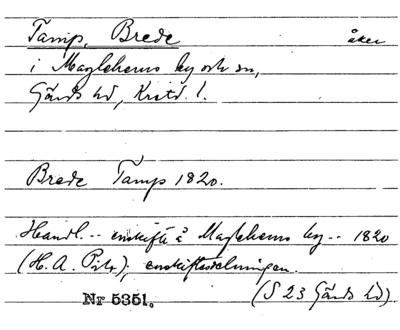 Tamp, Brede åker
i Maglehems by och sn,
Gärds hd, Krstd. l.
Brede Tamp 1820.
Handl. -- enskifte å Maglehems by -- 1820
(H. A. ); enskiftesdelningen.
Nr 5351. (S 23 Gärds hd)